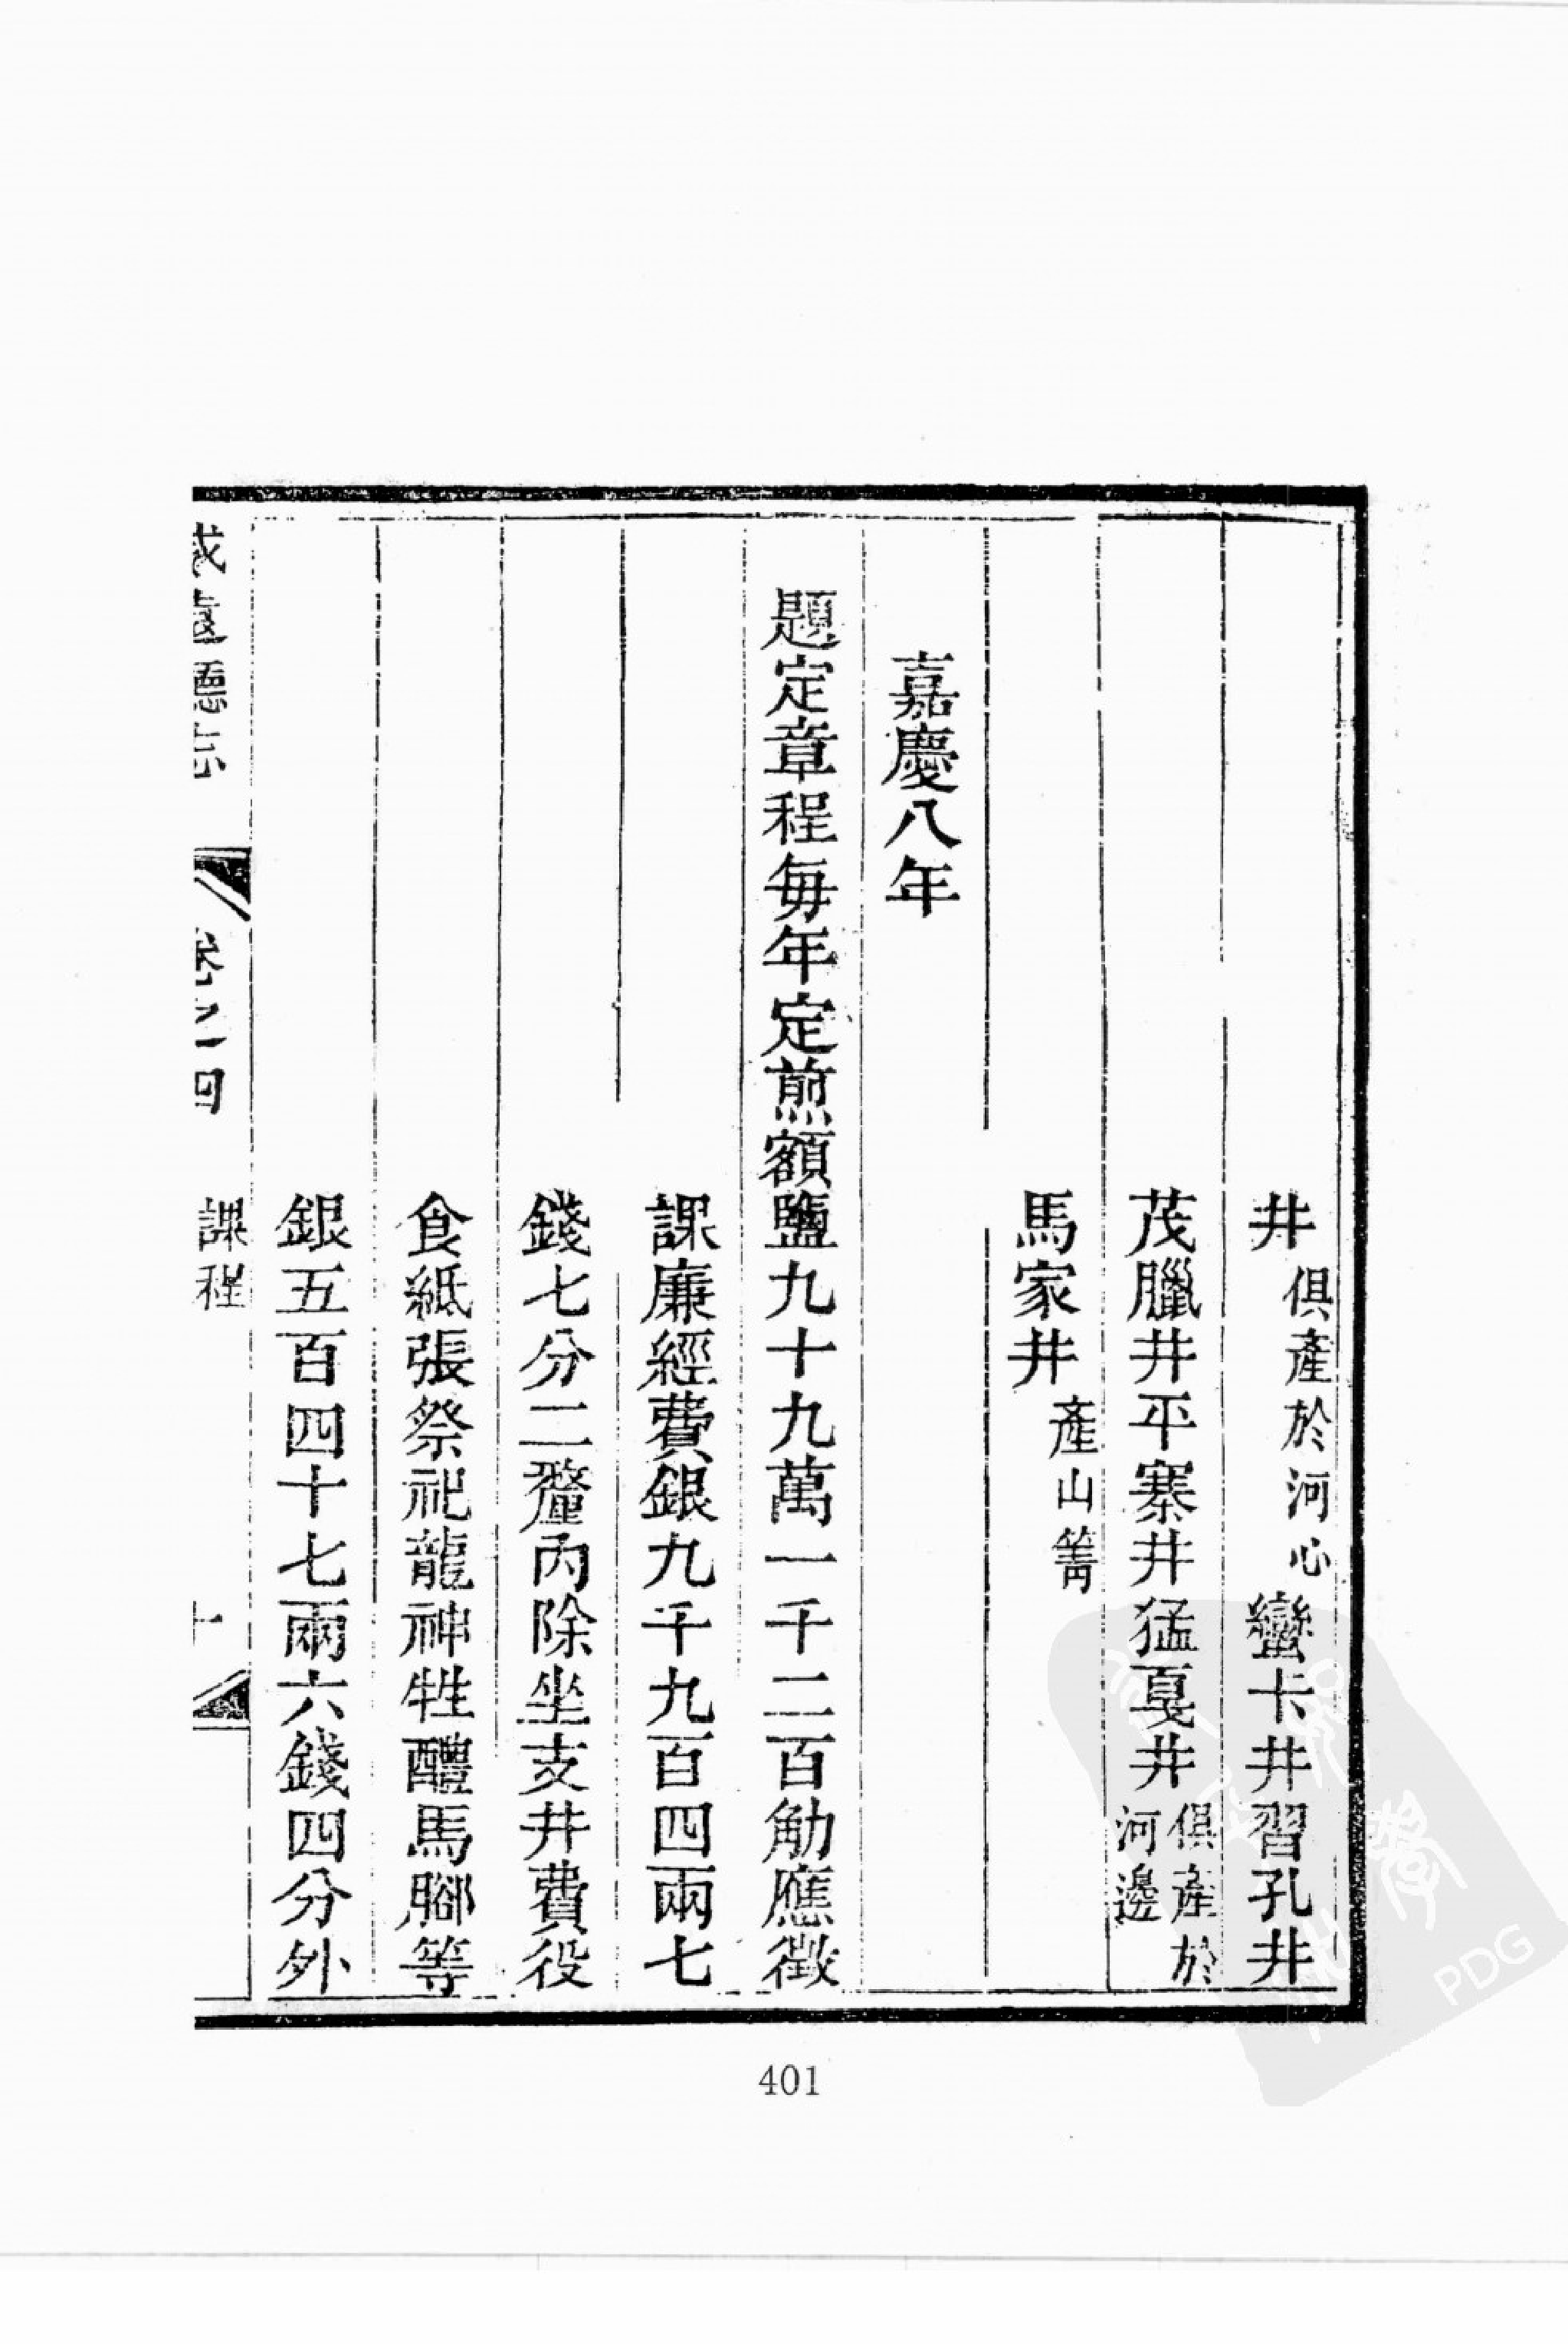 井俱產於河心蠻卡井習孔井
茂臘井平寨井猛戛井俱產於河邊
馬家井產山箐
嘉慶八年
題定章程每年定煎額鹽九十九萬一千二百觔應徵
課廉經費銀九千九百四兩七
錢七分二釐內除坐支井費役
食紙張祭祀龍神牲醴馬腳等
銀五百四十七兩六錢四分外
威遠廳志 卷之四 課程 十
401
PDG